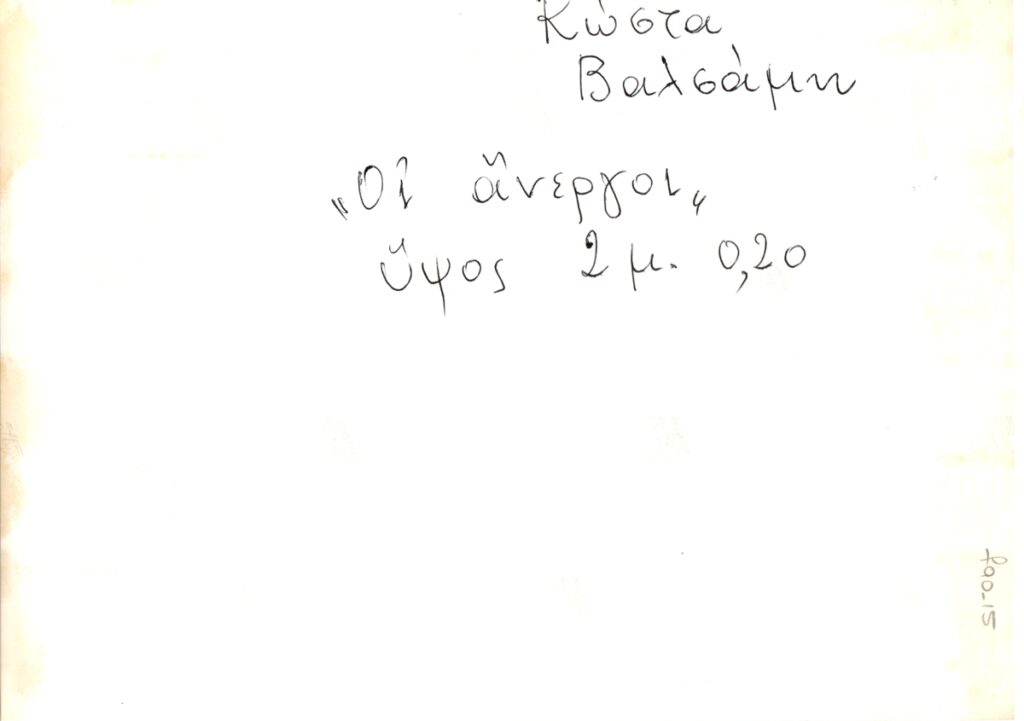 Κώστα
Βαλσάμη
„Οἱ ἄνεργοι„
ὕψος 2 μ. 0,20
φ90-15